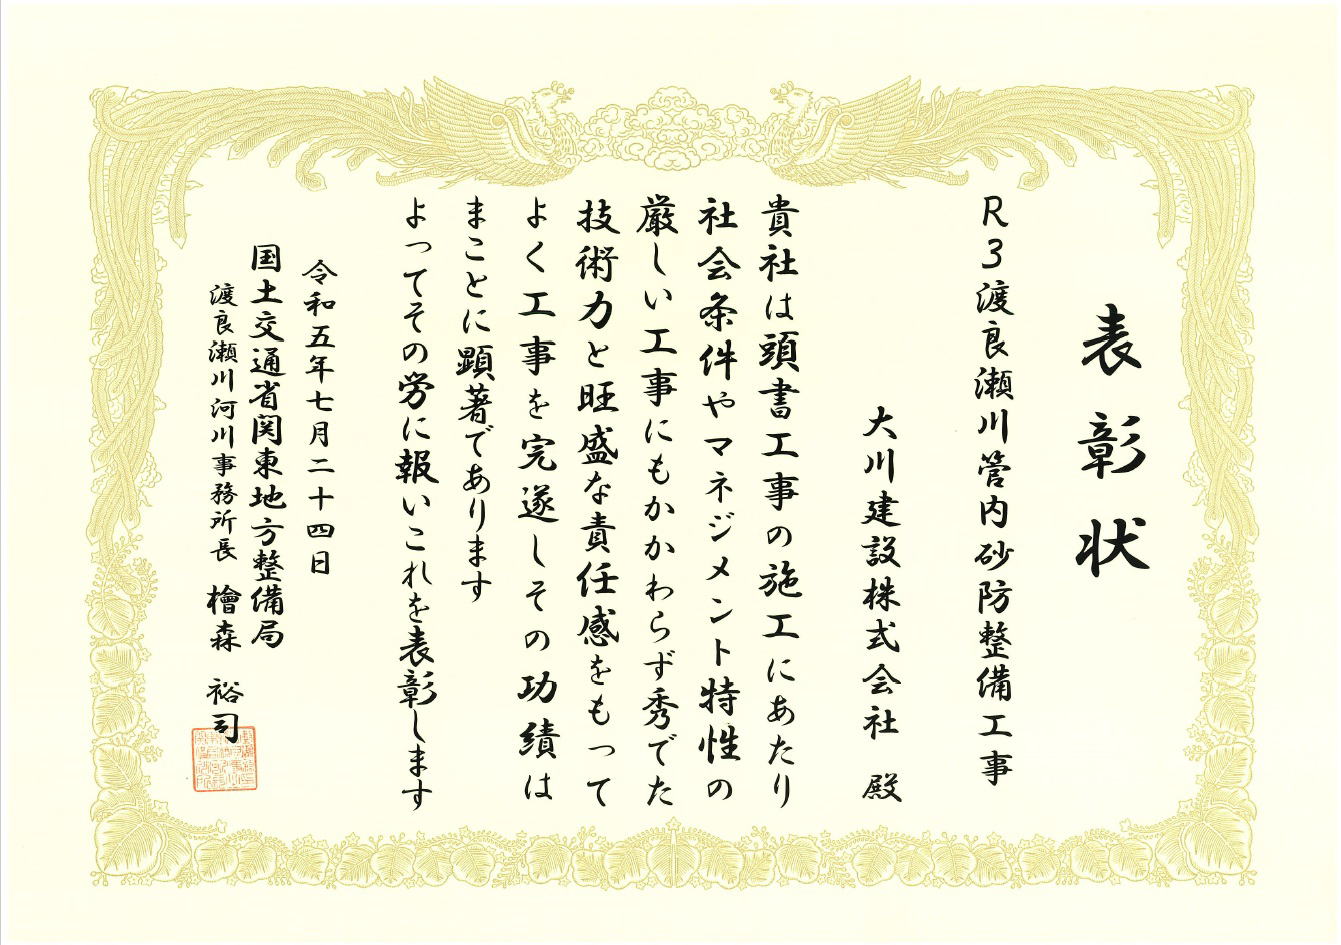 表彰状
R3渡良瀬川管内砂防整備工事
大川建設株式会社 殿
貴社は頭書工事の施工にあたり
社会条件やマネジメント特性の
厳しい工事にもかかわらず秀でた
技術力と旺盛な責任感をもって
よく工事を完遂しその功績は
まことに顕著であります
よってその労に報いこれを表彰します
令和五年七月二十四日
国土交通省関東地方整備局
渡良瀬川河川事務所長 檜森 裕司